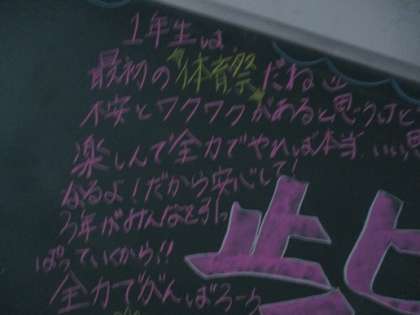 1年生は、
最初の"体育祭"だね
不安とワクワクがあると思うけど
楽しんで全力でやれば本当、いい思
なるよ！だから安心して！
3年がみんなを引っ
ぱっていくから！！
全力でがんばろーう